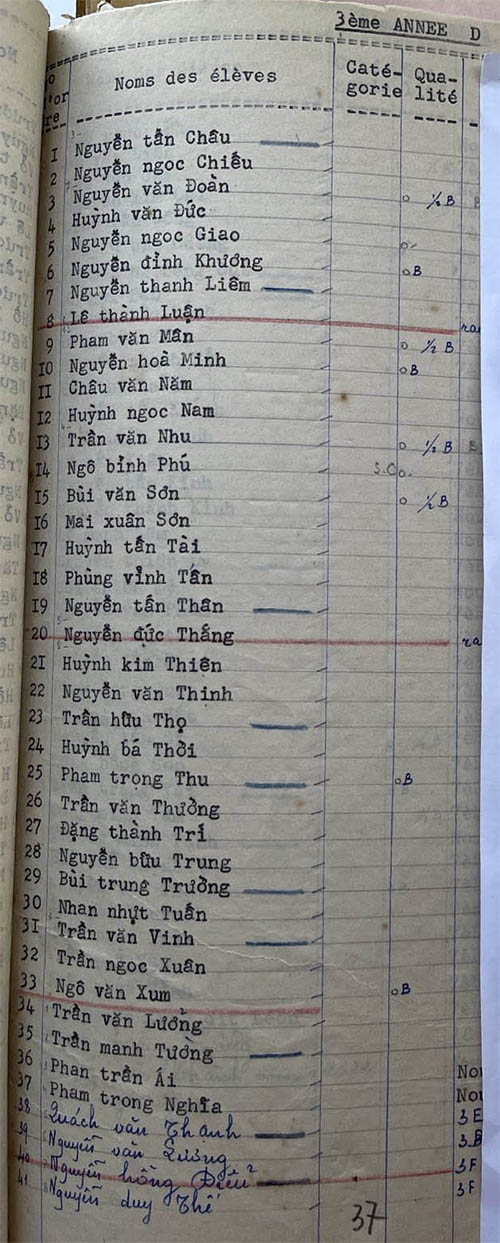 3ème ANNEE D
Noms des élèves Caté- Qua-
re gorie lité
1 Nguyễn tấn Châu
2 Nguyễn ngọc Chiếu
3 Nguyễn văn Đoàn o ½ B
4 Huỳnh văn Đức
5 Nguyễn ngọc Giao o
6 Nguyễn đình Khương o B
7 Nguyễn thanh Liêm
8 Lê thành Luận
9 Pham văn Mân o ½ B
10 Nguyễn hoà Minh o B
11 Châu văn Năm
12 Huỳnh ngọc Nam
13 Trần văn Nhu o ½ B
14 Ngô bình Phú S.C o
15 Bùi văn Sơn o ½ B
16 Mai xuân Sơn
17 Huỳnh tấn Tài
18 Phùng vĩnh Tấn
19 Nguyễn tấn Thân
20 Nguyễn đức Thắng
21 Huỳnh kim Thiên
22 Nguyễn văn Thinh
23 Trần hữu Thọ
24 Huỳnh bá Thời
25 Pham trọng Thu o B
26 Trần văn Thưởng
27 Đặng thành Trí
28 Nguyễn bữu Trung
29 Bùi trung Trường
30 Nhan nhựt Tuấn
31 Trần văn Vinh
32 Trần ngọc Xuân
33 Ngô văn Xum o B
34 Trần văn Lưởng
35 Trần manh Tường
36 Phan trần Ái
37 Pham trong Nghĩa
38 Quách văn Thanh 3E
39 Nguyễn văn Lương 3B
40 Nguyễn hồng Điểu 3F
41 Nguyễn duy Thế 3F
37